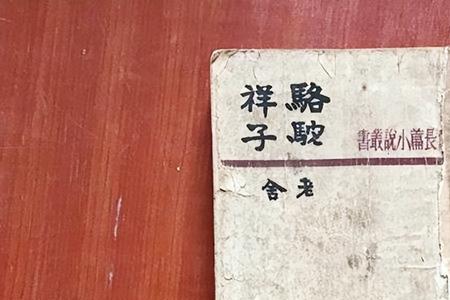 駱駝
祥子
長篇小說叢書
老舍